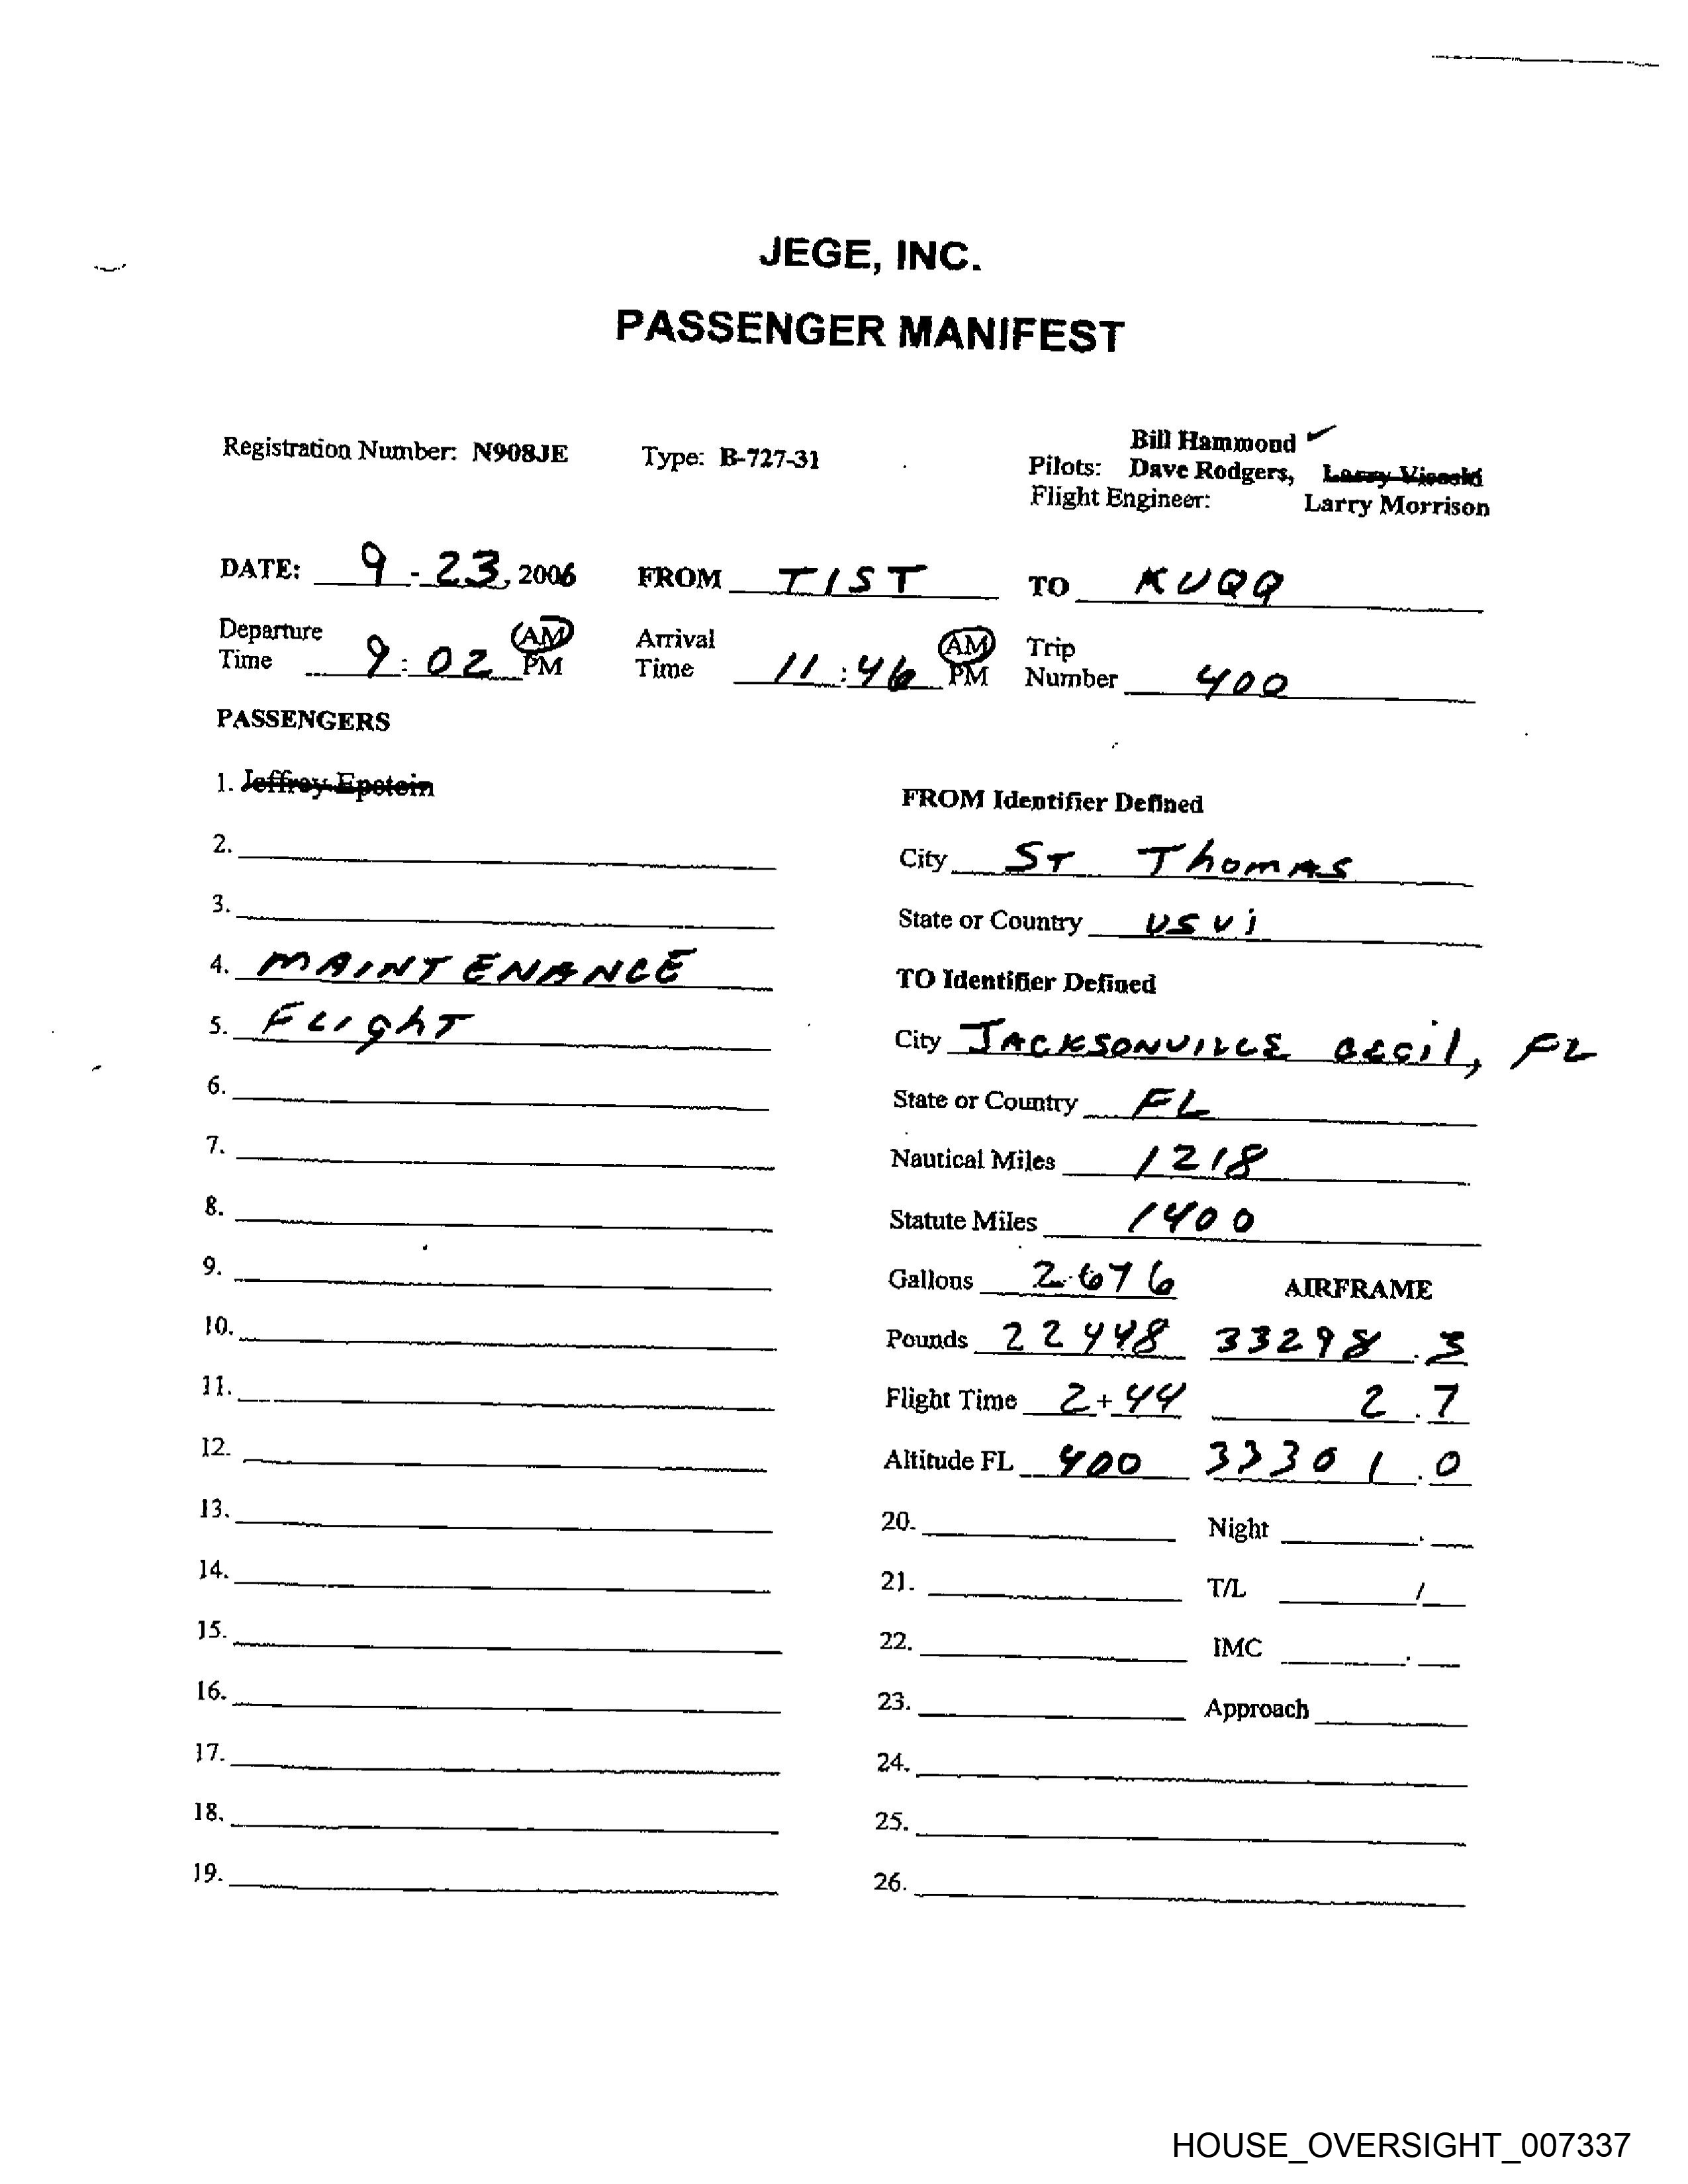 JEGE, INC.
PASSENGER MANIFEST
Registration Number: N908JE Type: B-727-31
Bill Hammond ✓
Pilots: Dave Rodgers, Larry Visoski
Flight Engineer: Larry Morrison
DATE: 9 - 23, 2006 FROM TIST TO KUQQ
Departure Time 9:02 AM PM Arrival Time 11:46 AM PM Trip Number 400
PASSENGERS
1. Jeffrey Epstein
2.
3.
4. MAINTENANCE
5. FLIghT
6.
7.
8.
9.
10.
11.
12.
13.
14.
15.
16.
17.
18.
19.
FROM Identifier Defined
City ST ThomAS
State or Country USVi
TO Identifier Defined
City JACKSONVILLE cecil, FL
State or Country FL
Nautical Miles 1218
Statute Miles 1400
Gallons 2676 AIRFRAME
Pounds 22448 33298.3
Flight Time 2+44 2.7
Altitude FL 400 33301.0
20. Night .
21. T/L /
22. IMC .
23. Approach
24.
25.
26.
HOUSE_OVERSIGHT_007337